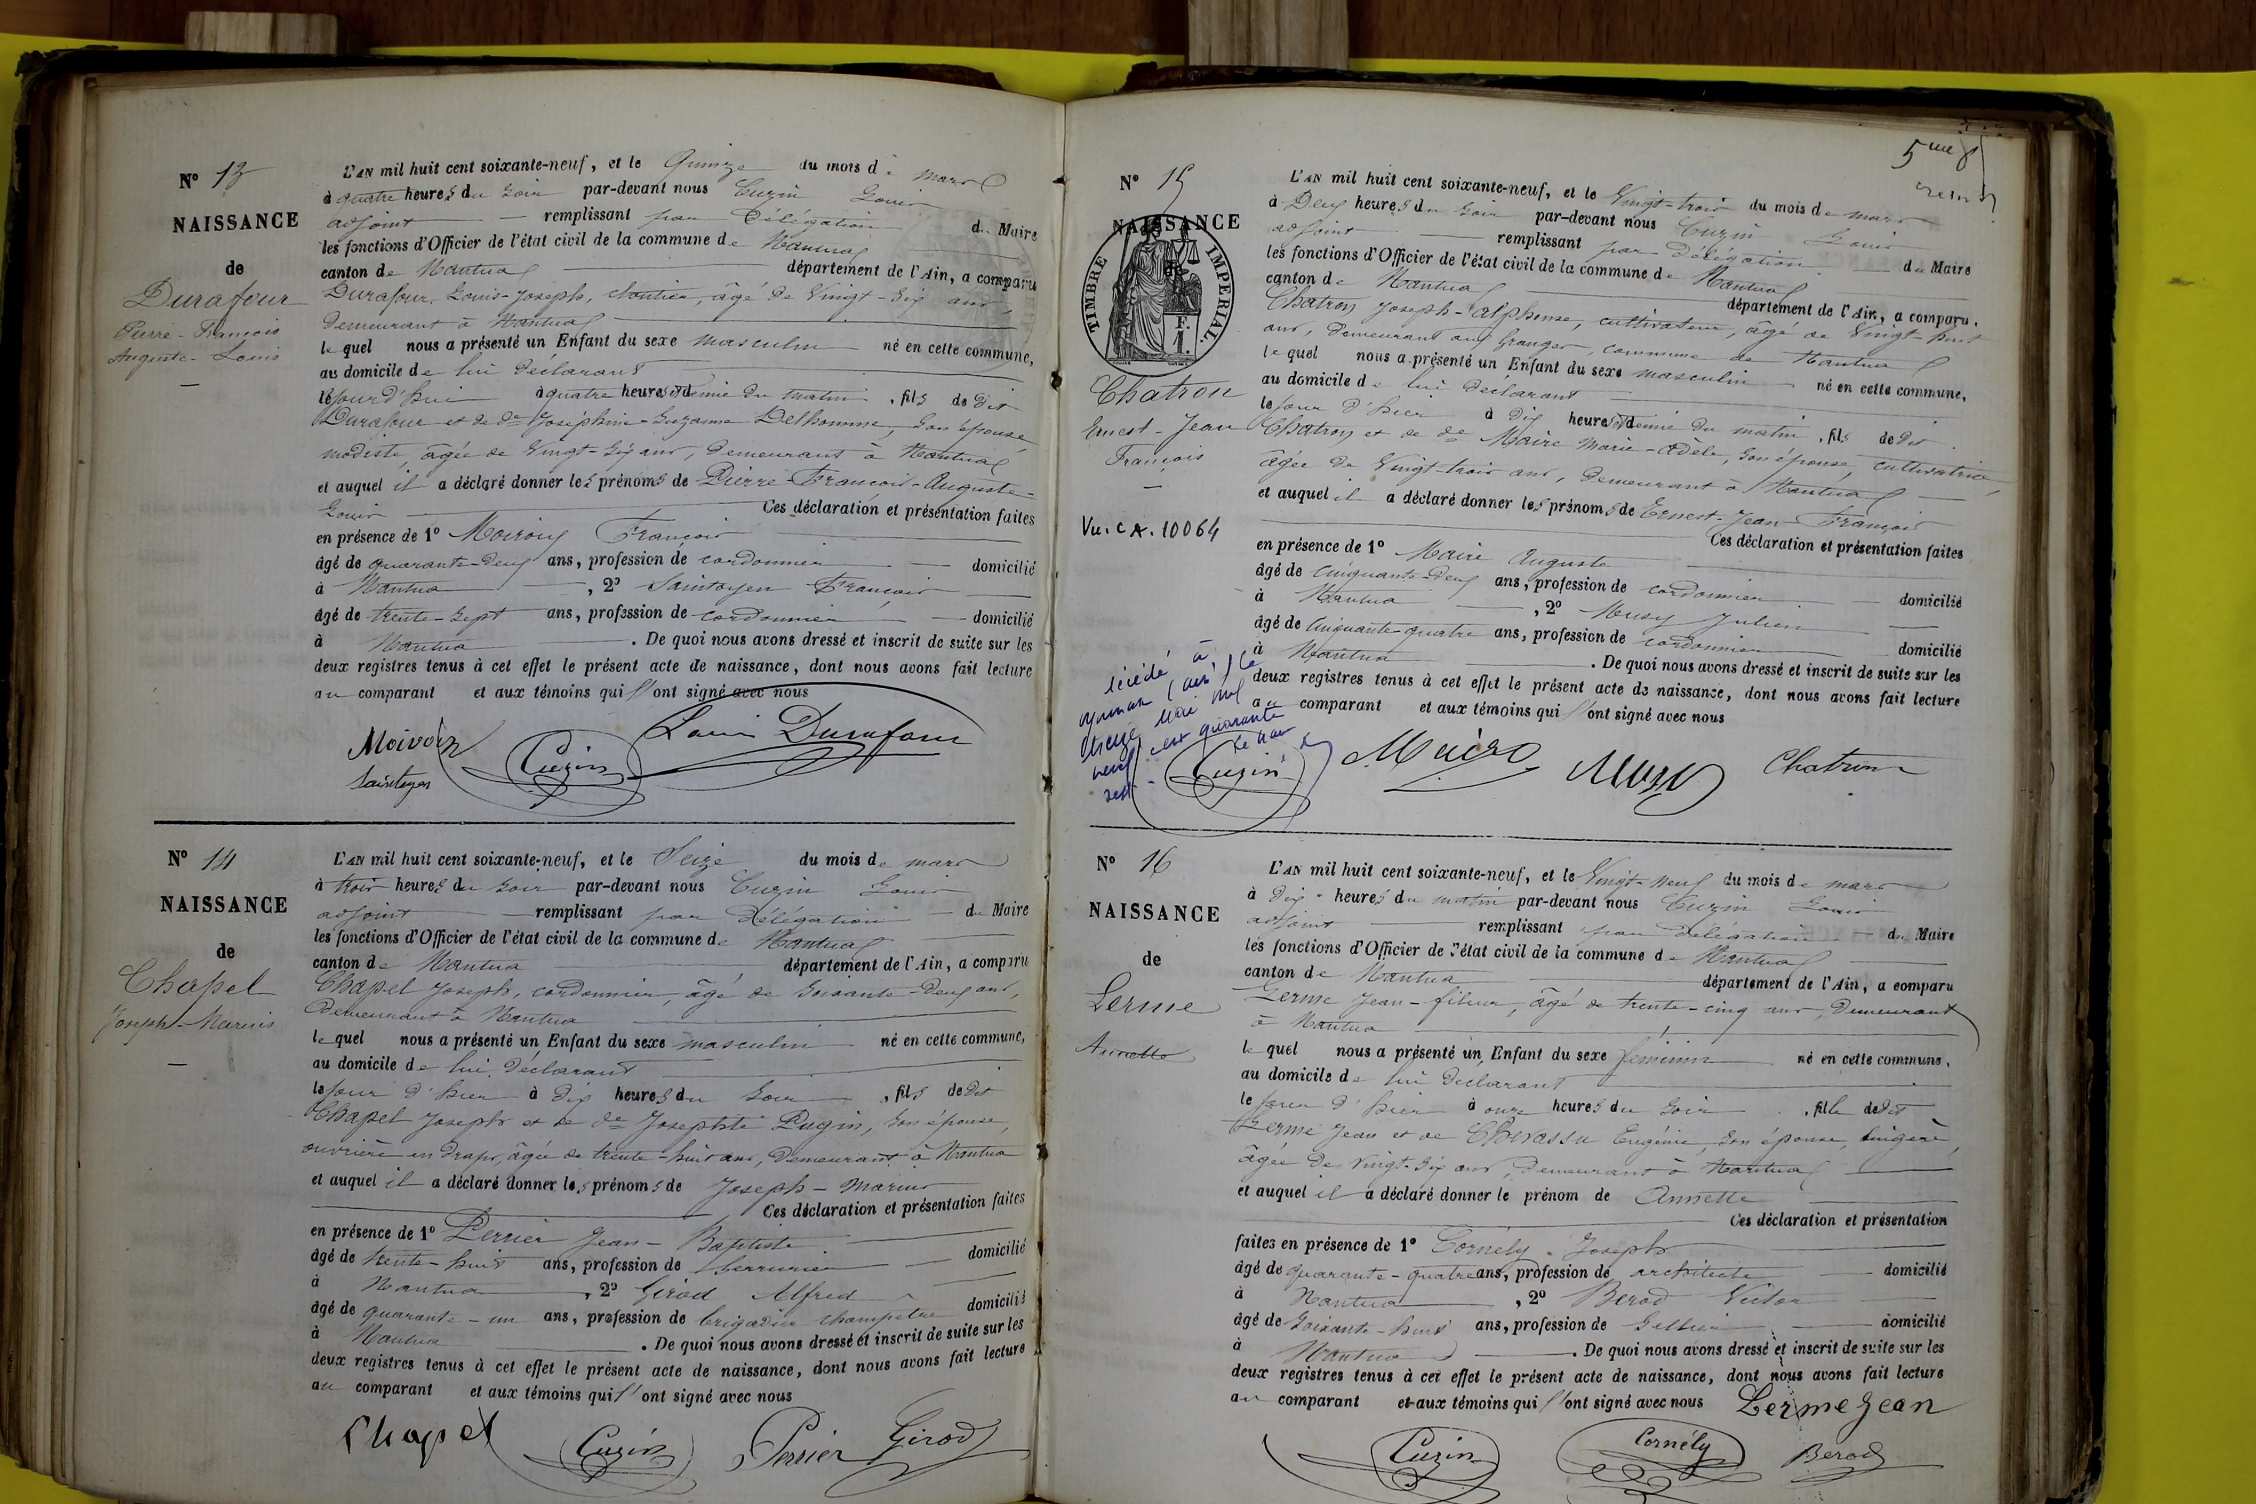 N° 13
NAISSANCE
de
Durafour
Pierre-François
Auguste-Louis
L'AN mil huit cent soixante-neuf, et le Quinze du mois de mars
à quatre heures du soir par-devant nous Cuzin Louis
adjoint remplissant par Délégation du Maire
les fonctions d'Officier de l'état civil de la commune de Nantua
canton de Nantua département de l'Ain, a comparu
Durafour, Louis-Joseph, âgé de Vingt-six ans,
Demeurant à Nantua
lequel nous a présenté un Enfant du sexe masculin né en cette commune,
au domicile de lui Déclarant
le jourd'hui à quatre heures et demie du matin, fils de dit
Durafour et de de Joséphine-Suzanne Delhomme, son épouse,
modiste, âgée de Vingt-six ans, Demeurant à Nantua
et auquel il a déclaré donner les prénoms de Pierre-François-Auguste-
Louis Ces déclaration et présentation faites
en présence de 1° François
âgé de quarante-deux ans, profession de cordonnier domicilié
à Nantua, 2° Saintoyen François
âgé de trente-sept ans, profession de cordonnier domicilié
à Nantua. De quoi nous avons dressé et inscrit de suite sur les
deux registres tenus à cet effet le présent acte de naissance, dont nous avons fait lecture
au comparant et aux témoins qui l'ont signé avec nous
Louis Durafour
Cuzin
Saintoyen
N° 14
NAISSANCE
de
Chapel
Joseph-Marius
L'AN mil huit cent soixante-neuf, et le Seize du mois de mars
à trois heures du soir par-devant nous Cuzin Louis
adjoint remplissant par Délégation du Maire
les fonctions d'Officier de l'état civil de la commune de Nantua
canton de Nantua département de l'Ain, a comparu
Chapel Joseph, cordonnier, âgé de soixante-deux ans,
Demeurant à Nantua
lequel nous a présenté un Enfant du sexe masculin né en cette commune,
au domicile de lui Déclarant
le jour d'hier à dix heures du soir, fils de dit
Chapel Joseph et de de Josephte Pugin, son épouse,
ouvrière en draps, âgée de trente-huit ans, Demeurant à Nantua
et auquel il a déclaré donner les prénoms de Joseph-Marius
Ces déclaration et présentation faites
en présence de 1° Perrier Jean-Baptiste
âgé de trente-huit ans, profession de serrurier domicilié
à Nantua, 2° Girod Alfred
âgé de quarante-un ans, profession de brigadier champêtre domicilié
à Nantua. De quoi nous avons dressé et inscrit de suite sur les
deux registres tenus à cet effet le présent acte de naissance, dont nous avons fait lecture
au comparant et aux témoins qui l'ont signé avec nous
Chapel Cuzin Perrier Girod
5me
N° 15
NAISSANCE
de
TIMBRE IMPERIAL.
F.
1.
Chatron
Ernest-Jean
François
Vu. CA. 10064
L'AN mil huit cent soixante-neuf, et le Vingt-trois du mois de mars
à Deux heures du soir par-devant nous Cuzin Louis
adjoint remplissant par Délégation du Maire
les fonctions d'Officier de l'état civil de la commune de Nantua
canton de Nantua département de l'Ain, a comparu.
Chatron Joseph-Alphonse, cultivateur, âgé de Vingt-huit
ans, Demeurant aux Granges, commune de Nantua
lequel nous a présenté un Enfant du sexe masculin né en cette commune,
au domicile de lui Déclarant
le jour d'hier à dix heures et demie du matin, fils de dit
Chatron et de de Maire Marie-Adèle, son épouse, cultivatrice,
âgée de Vingt-trois ans, Demeurant à Nantua
et auquel il a déclaré donner les prénoms de Ernest-Jean-François
Ces déclaration et présentation faites
en présence de 1° Maire Auguste
âgé de Cinquante-deux ans, profession de cordonnier domicilié
à Nantua, 2° Musy Julien
âgé de cinquante-quatre ans, profession de cordonnier domicilié
à Nantua. De quoi nous avons dressé et inscrit de suite sur les
deux registres tenus à cet effet le présent acte de naissance, dont nous avons fait lecture
au comparant et aux témoins qui l'ont signé avec nous
décédé à
Oyonnax (Ain) le
treize mai mil
neuf cent quarante
sept
Cuzin Maire Musy Chatron
N° 16
NAISSANCE
de
Lerme
Annette
L'AN mil huit cent soixante-neuf, et le Vingt-neuf du mois de mars
à Dix heures du matin par-devant nous Cuzin Louis
adjoint remplissant par délégation du Maire
les fonctions d'Officier de l'état civil de la commune de Nantua
canton de Nantua département de l'Ain, a comparu
Lerme Jean-fileur, âgé de trente-cinq ans, Demeurant
à Nantua
lequel nous a présenté un Enfant du sexe féminin né en cette commune,
au domicile de lui Déclarant
le jour d'hier à onze heures du soir, fille de dit
Lerme Jean et de Chavassu Eugénie, son épouse, lingère,
âgée de vingt-six ans, Demeurant à Nantua
et auquel il a déclaré donner le prénom de Annette
Ces déclaration et présentation
faites en présence de 1° Cornély Joseph
âgé de quarante-quatre ans, profession de architecte domicilié
à Nantua, 2° Berod Victor
âgé de soixante-huit ans, profession de Sellier domicilié
à Nantua. De quoi nous avons dressé et inscrit de suite sur les
deux registres tenus à cet effet le présent acte de naissance, dont nous avons fait lecture
au comparant et aux témoins qui l'ont signé avec nous Lerme Jean
Cuzin Cornély Berod